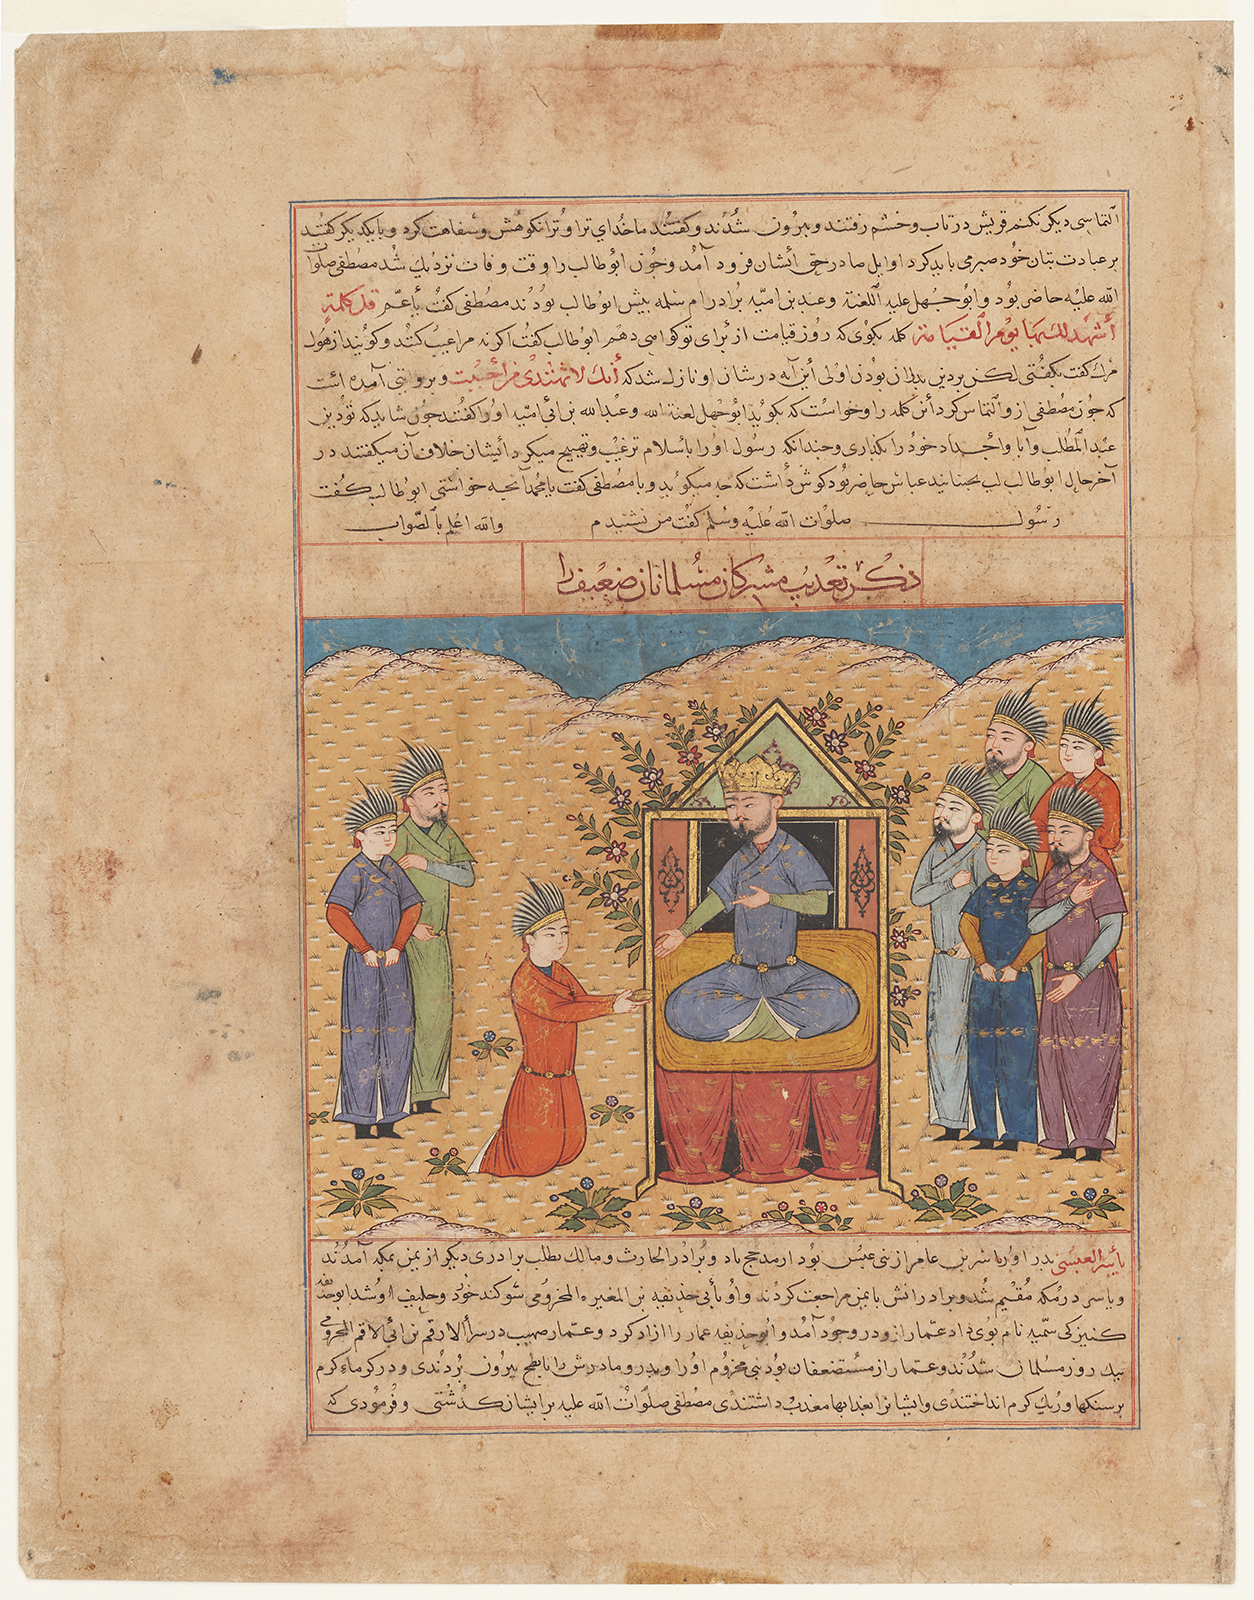 التماسی دیگر نکنم قریش در تاب و خشم رفتند و بیرون شدند و کفتند ما خدای ترا و ترا نکوهش و سفاهت کرد و با یکدیکر کفتند
بر عبادت بتان خود صبر می باید کرد اوایل صاد در حق ایشان فرود آمد و چون ابوطالب را وقت وفات نزدیک شد مصطفی صلوات
الله علیه حاضر بود و ابوجهل علیه اللعنة و عبد بن امیه برادر ام سلمه پیش ابوطالب بودند مصطفی کفت یا عم قل کلمة
أشهد لك بها یوم القیامة کلمه بکوی که روز قیامت از برای تو کواهی دهم ابوطالب کفت اکر نه مرا عیب کنند و کویند از هول
مرک کفت بکفتی لکن بر دین پدران بودن اولی این آیه در شان او نازل شد که أنك لا تهتدی من أحببت و بروایتی آمده است
که چون مصطفی از و التماس کرد این کلمه را و خواست که بکوید ابوجهل لعنة الله و عبدالله بن ابی امیه او را کفتند چون شاید که تو دین
عبد المطلب و آبا و اجداد خود را بکذاری و چندانکه رسول او را باسلام ترغیب و تهییج میکرد ایشان خلاف آن میکفتند در
آخر حال ابوطالب لب بجنبانید عباس حاضر بود کوش داشت که چه میکوید و با مصطفی کفت یا محمد آنچه خواستی ابوطالب بکفت
رسول صلوات الله علیه وسلم کفت من نشنیدم والله اعلم بالصواب
ذکر تعذیب مشرکان مسلمانان ضعیف را
یاسر العبسی پدر او یاسر بن عامر از بنی عبس بود از مدحج باد و برادر الحارث و مالک بطلب برادری دیکر از یمن بمکه آمدند
و یاسر در مکه مقیم شد و برادرانش با یمن مراجعت کردند و او با ابی حذیفه بن المغیره المخزومی سوکند خورد و حلیف او شد ابوحذیفه
کنیزکی سمیه نام بوی داد عمار ازو در وجود آمد و ابوحذیفه عمار را ازاد کرد و عمار و صهیب در سرأ الارقم بن ابی الارقم المخزومی
بیک روز مسلمان شدند و عمار از مستضعفان بود بنی مخزوم او را و پدر و مادرش را بابطح بیرون بردندی و در کرماء کرم
بر سنکها و ریک کرم انداختندی و ایشانرا بعذابها معذب داشتندی مصطفی صلوات الله علیه بر ایشان کذشتی و فرمودی که